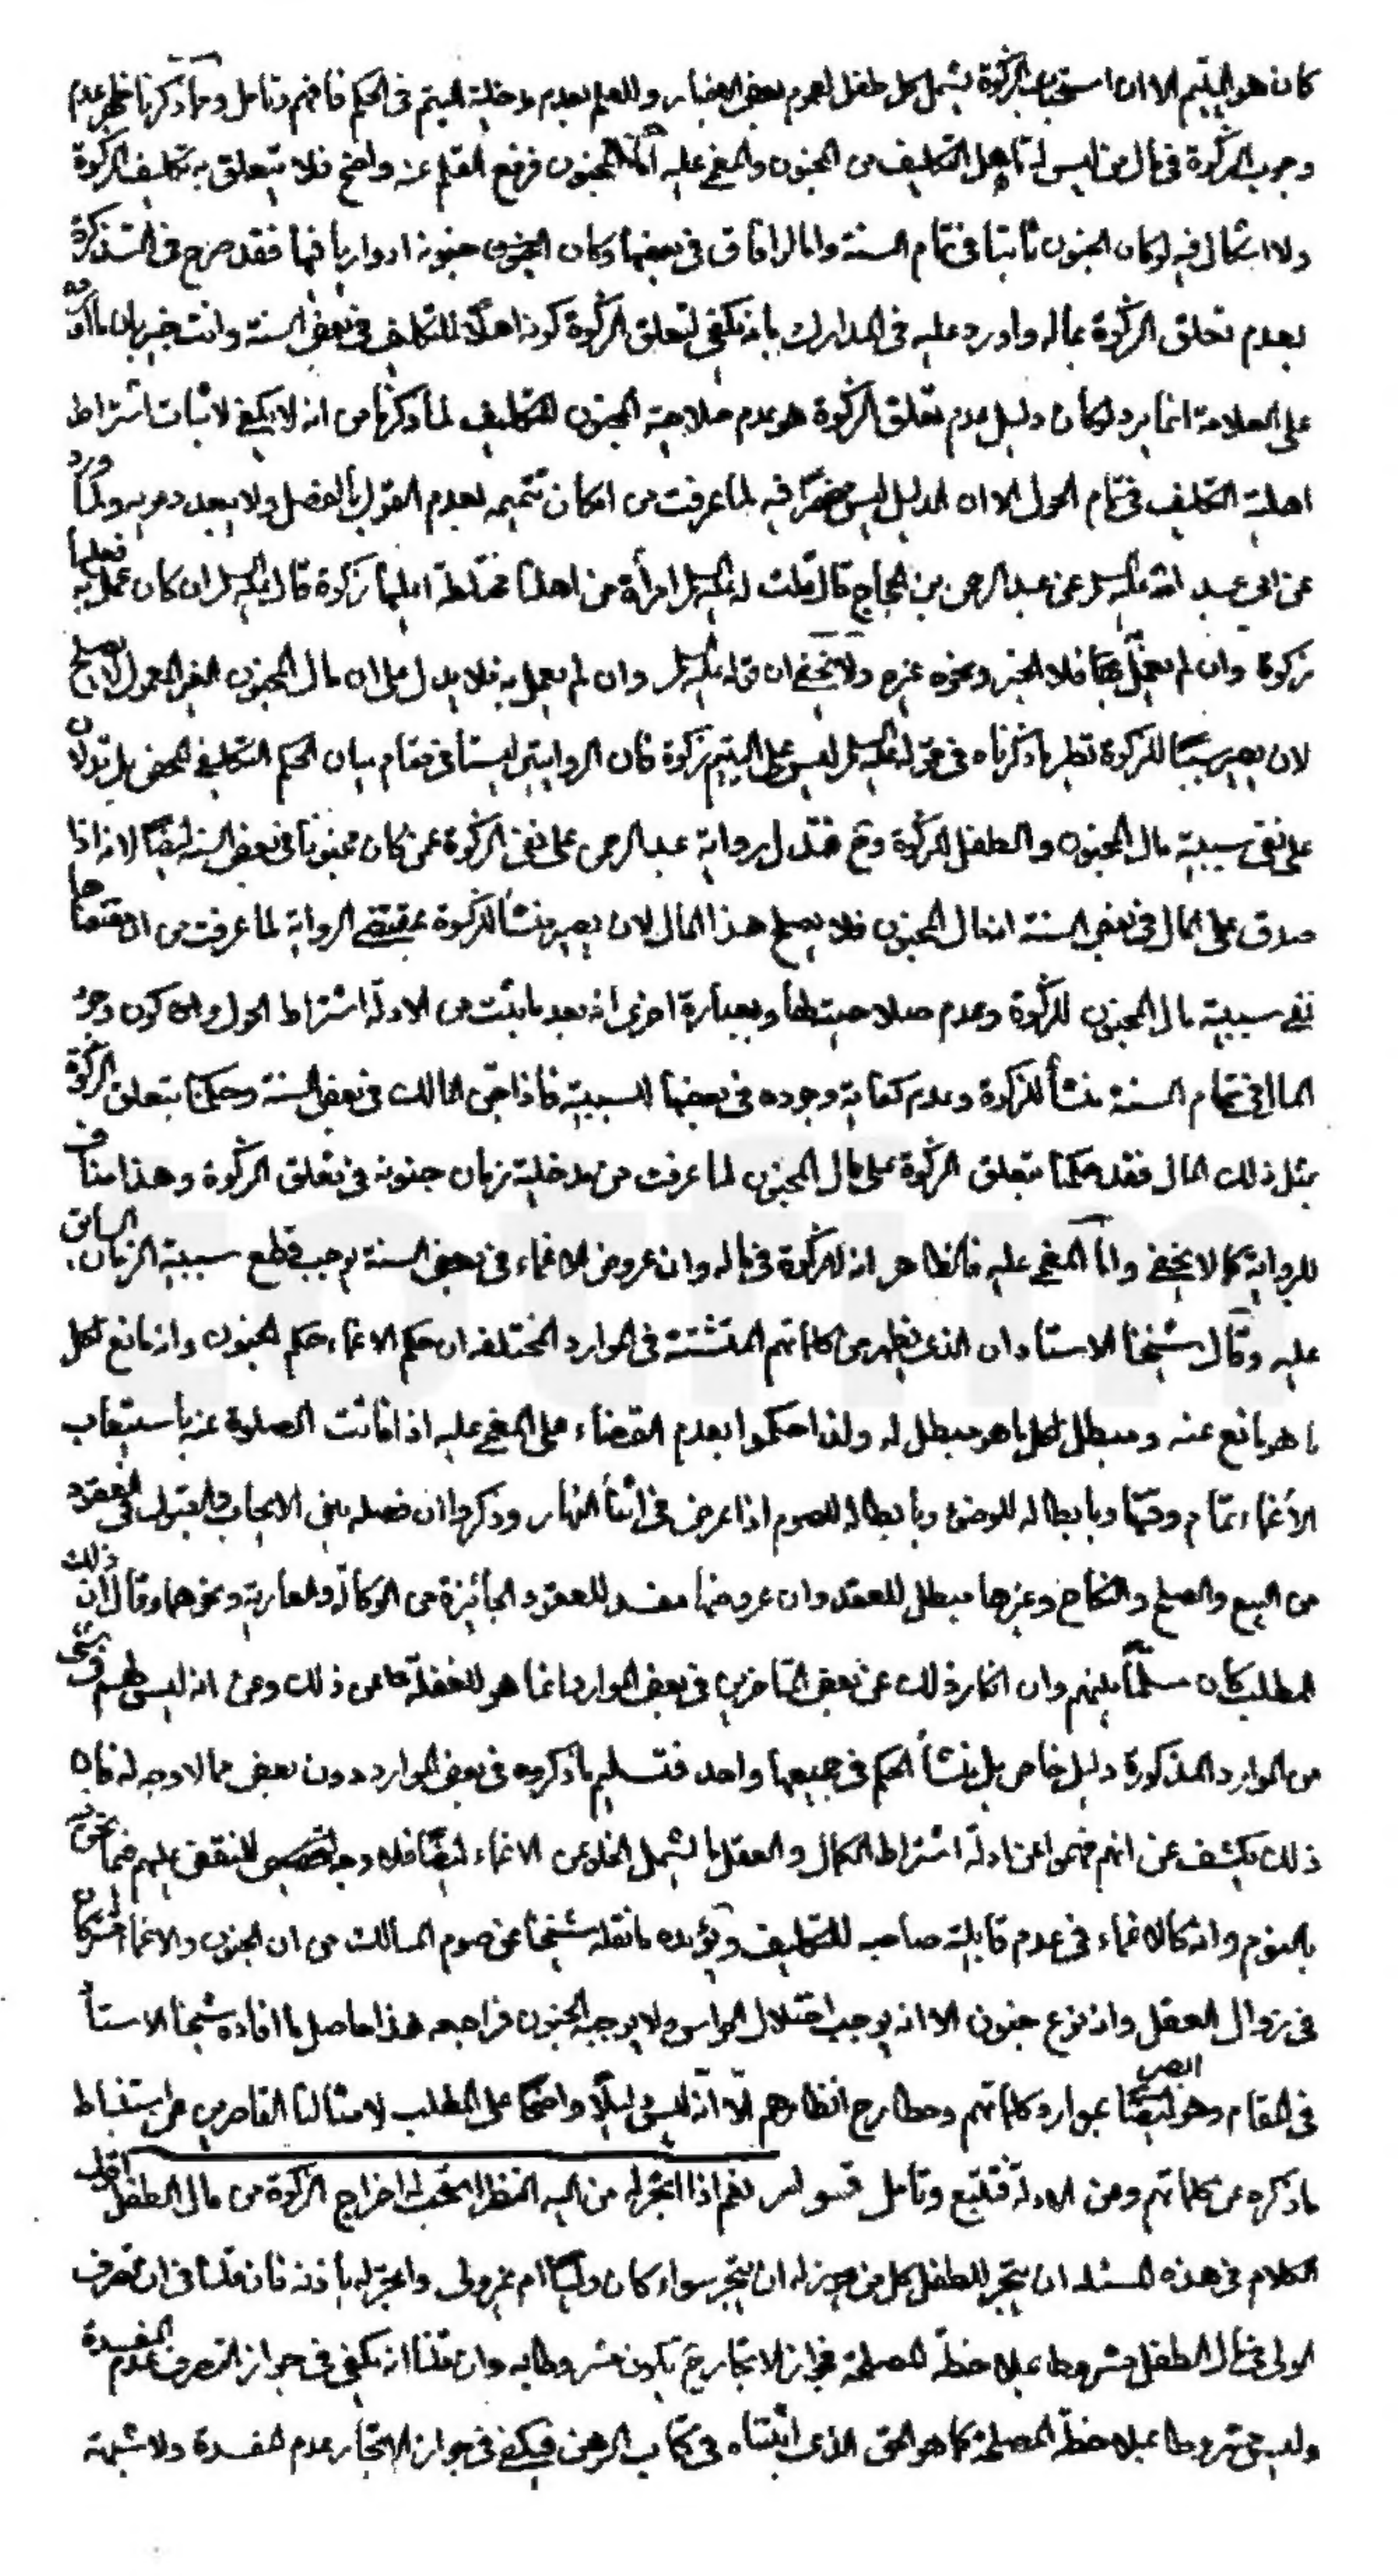 كان هو اليتيم الا ان استحباب الزكوة يشمل كل طفل لعموم بعض الاخبار وللعلم بعدم مدخلية اليتم في الحكم فافهم وتامل ومما ذكرنا ظهر عدم
وجوب الزكوة في مال من ليس له تاهل التكليف من المجنون والمغمى عليه اما المجنون فرفع القلم عنه واضح فلا يتعلق به تكليف الزكوة
ولا اشكال فيه لو كان الجنون ثابتا في تمام السنة واما لو افاق في بعضها وكان المجنون جنونه ادواريا فيها فقد صرح في التذكرة
بعدم تعلق الزكوة بماله واورد عليه في المدارك بانه يكفي لتعلق الزكوة كونه اهلا للتكليف في بعض السنة وانت خبير بان ما اورده
على العلامة انما يرد لو كان دليل عدم تعلق الزكوة هو عدم صلاحية المجنون للتكليف لما ذكرنا من انه لا يكفي لاثبات اشتراط
اهلية التكليف في تمام الحول الا ان الدليل ليس منحصرا فيه لما عرفت من امكان تتميمه بعدم القول بالفصل ولا يبعد دعويه ولما ورد
عن ابي عبد الله عليه السلم عن عبد الرحمن بن الحجاج قال قلت له عليه السلم امرأة من اهلنا مختلطة اعليها زكوة قال عليه السلم ان كان عمل به فعليها
زكوة وان لم يعمل بها فلا الخبر ونحوه غيره ولا يخفى ان قوله عليه السلم وان لم يعمل به فلا يدل على ان مال المجنون الغير المعمول لا يصلح
لان يصير سببا للزكوة نظير ما ذكرناه في قوله عليه السلم ليس على اليتيم زكوة فان الروايتين ليستا في مقام بيان الحكم التكليفي المحض بل تدلان
على نفي سببية مال المجنون والطفل للزكوة وح فتدل رواية عبد الرحمن على نفي الزكوة عمن كان مجنونا في بعض السنة ايضا لانه اذا
صدق على المال في بعض السنة انه مال المجنون فلا يصلح هذا المال لان يصير منشأ للزكوة بمقتضى الرواية لما عرفت من ان مقتضاها
نفي سببية مال المجنون للزكوة وعدم صلاحيته لها وبعبارة اخرى انه بعد ما يثبت من الادلة اشتراط الحول وان كون وجود
المال في تمام السنة منشأ للزكوة وعدم كفاية وجوده في بعضها للسببية فاذا جن المالك في بعض السنة وحكمنا بتعلق الزكوة
بمثل ذلك المال فقد حكمنا بتعلق الزكوة على مال المجنون لما عرفت من مدخلية زمان جنونه في تعلق الزكوة وهذا مناف
للرواية كما لا يخفى واما المغمى عليه فالظاهر انه لا زكوة في ماله وان عروض الاغماء في بعض السنة يوجب قطع سببية الزمان السابق
عليه وقال شيخنا الاستاد ان الذي يظهر من كلماتهم المتشتتة في الموارد المختلفة ان حكم الاغماء حكم الجنون وانه مانع لكل
ما هو مانع عنه ومبطل لكل ما هو مبطل له ولذا حكموا بعدم القضاء على المغمى عليه اذا فاتت الصلوة عنه باستيعاب
الاغماء تمام وقتها وبابطاله للوضوء وبابطاله للصوم اذا عرض في اثناء النهار وذكروا ان فصله بين الايجاب والقبول في العقود
من البيع والصلح والنكاح وغيرها مبطل للعقد وان عروضها مفسد للعقود الجائزة من الوكالة والعارية ونحوهما وقال ان ذلك
المطلب كان مسلما بينهم وان انكار ذلك عن بعض المتاخرين في بعض الموارد انما هو للغفلة عن ذلك وعن انه ليس لهم في شيء
من الموارد المذكورة دليل خاص بل منشأ الحكم في جميعها واحد فتسليم ما ذكروه في بعض الموارد دون بعض مما لا وجه له فان
ذلك يكشف عن انهم فهموا من ادلة اشتراط الكمال والعقل ما يشمل الخلو عن الاغماء ايضا فلا وجه للنقض عليهم فيما نحن فيه
بالنوم وانه كالاغماء في عدم قابلية صاحبه للتكليف ويؤيده ما نقله شيخنا عن صوم المسالك من ان الجنون والاغماء اشتركا
في زوال العقل وانه نوع جنون الا انه يوجب اختلال الحواس ولا يوجبه الجنون فراجعه هذا حاصل ما افاده شيخنا الاستاد
في المقام وهو البصير بموارد كلماتهم ومطارح انظارهم الا انه ليس دليلا واضحا على المطلب لامثالنا القاصرين عن استنباط
ما ذكره من كلماتهم ومن الادلة فتتبع وتامل قوله نعم اذا اتجر له من اليه النظر استحب له اخراج الزكوة من مال الطفل اقول
الكلام في هذه المسئلة ان يتجر للطفل كل من يجوز له ان يتجر سواء كان وليا ام غير ولي واتجر له باذنه فان قلنا في ان تصرف
الولي في مال الطفل مشروط بملاحظة المصلحة فجواز الاتجار ح يكون مشروطا به وان قلنا انه يكفي في جواز التصرف عدم المفسدة
وليس مشروطا بملاحظة المصلحة كما هو الحق الذي اثبتناه في كتاب الرهن فيكفي في جواز الاتجار عدم المفسدة ولا شبهة